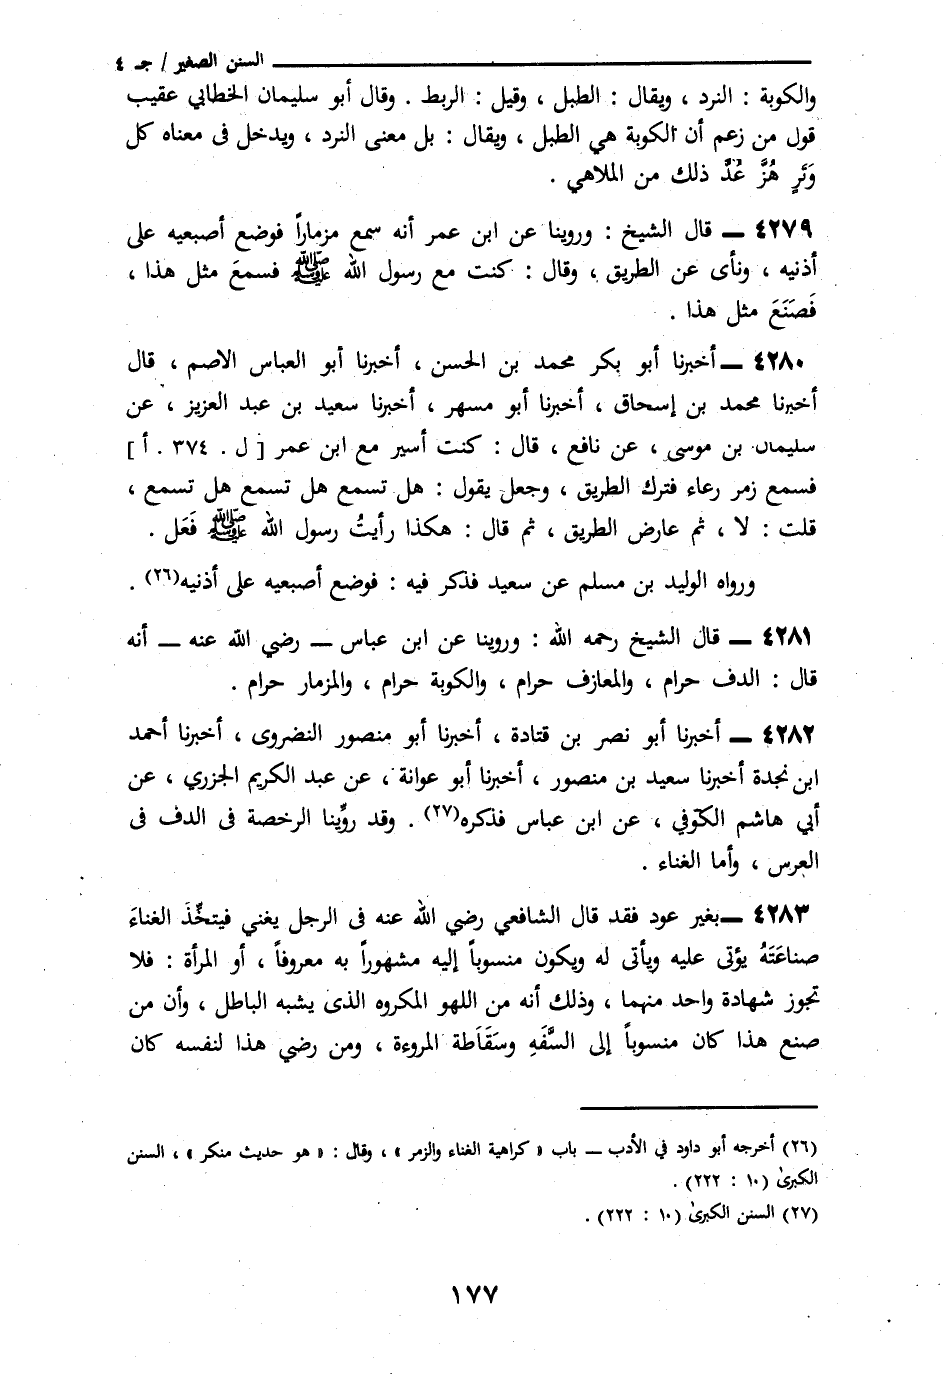 السنن الصغير / جـ ٤
والكوبة : النرد ، ويقال : الطبل ، وقيل : الربط . وقال أبو سليمان الخطابي عقيب
قول من زعم أن الكوبة هي الطبل ، ويقال : بل معنى النرد ، ويدخل فى معناه كل
وَتَرٍ هُزَّ عُدَّ ذلك من الملاهي .
٤٢٧٩ ــ قال الشيخ : وروينا عن ابن عمر أنه سمع مزماراً فوضع أصبعيه على
أذنيه ، ونأى عن الطريق ، وقال : كنت مع رسول الله ﷺ فسمعَ مثل هذا ،
فَصَنَعَ مثل هذا .
٤٢٨٠ ــ أخبرنا أبو بكر محمد بن الحسن ، أخبرنا أبو العباس الاصم ، قال
أخبرنا محمد بن إسحاق ، أخبرنا أبو مسهر ، أخبرنا سعيد بن عبد العزيز ، عن
سليمان بن موسى ، عن نافع ، قال : كنت أسير مع ابن عمر [ ل . ٣٧٤ . أ ]
فسمع زمر رعاء فترك الطريق ، وجعل يقول : هل تسمع هل تسمع هل تسمع ،
قلت : لا ، ثم عارض الطريق ، ثم قال : هكذا رأيتُ رسول الله ﷺ فَعَل .
ورواه الوليد بن مسلم عن سعيد فذكر فيه : فوضع أصبعيه على أذنيه(٢٦) .
٤٢٨١ ــ قال الشيخ رحمه الله : وروينا عن ابن عباس ــ رضي الله عنه ــ أنه
قال : الدف حرام ، والمعازف حرام ، والكوبة حرام ، والمزمار حرام .
٤٢٨٢ ــ أخبرنا أبو نصر بن قتادة ، أخبرنا أبو منصور النضروى ، أخبرنا أحمد
ابن نجدة أخبرنا سعيد بن منصور ، أخبرنا أبو عوانة ، عن عبد الكريم الجزري ، عن
أبي هاشم الكوفي ، عن ابن عباس فذكره(٢٧) . وقد روِّينا الرخصة فى الدف فى
العرس ، وأما الغناء .
٤٢٨٣ ــ بغير عود فقد قال الشافعي رضي الله عنه فى الرجل يغني فيتخِّذَ الغناءَ
صناعَتَهُ يؤتى عليه ويأتى له ويكون منسوباً إليه مشهوراً به معروفاً ، أو المرأة : فلا
تجوز شهادة واحد منهما ، وذلك أنه من اللهو المكروه الذى يشبه الباطل ، وأن من
صنع هذا كان منسوباً إلى السَّفَهِ وسَقَاطة المروءة ، ومن رضي هذا لنفسه كان
(٢٦) أخرجه أبو داود في الأدب ــ باب « كراهية الغناء والزمر » ، وقال : « هو حديث منكر » ، السنن
الكبرىٰ (١٠ : ٢٢٢) .
(٢٧) السنن الكبرىٰ (١٠ : ٢٢٢) .
١٧٧